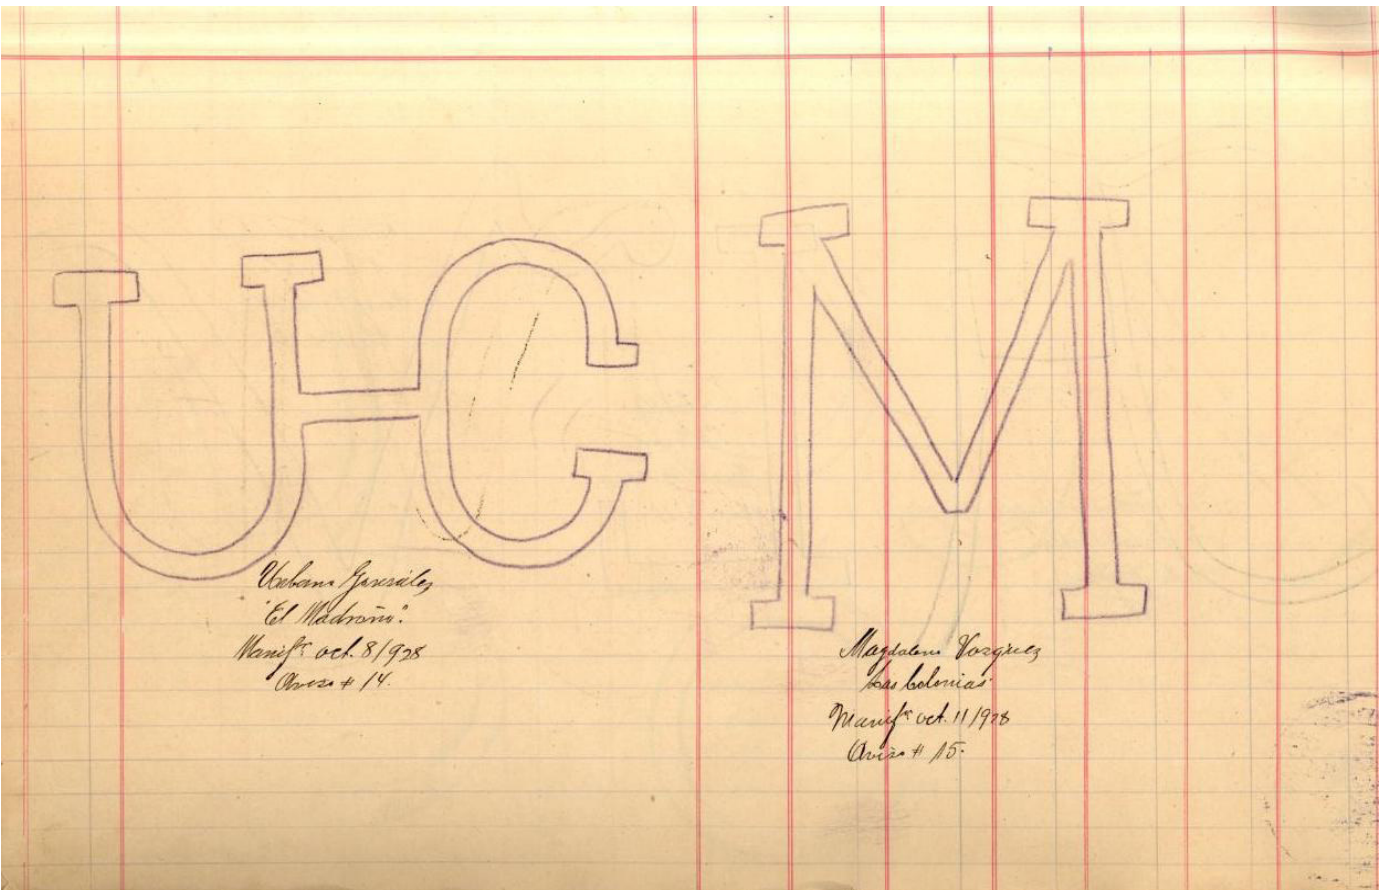 UC
Urbano Gonzáles
"El Madroño".
Manif.ᵗᵃ oct. 8/928
Aviso # 14.
M
Magdaleno Vazquez
Las Colonias
Manif.ᵗᵃ oct. 11/928
Aviso # 15.